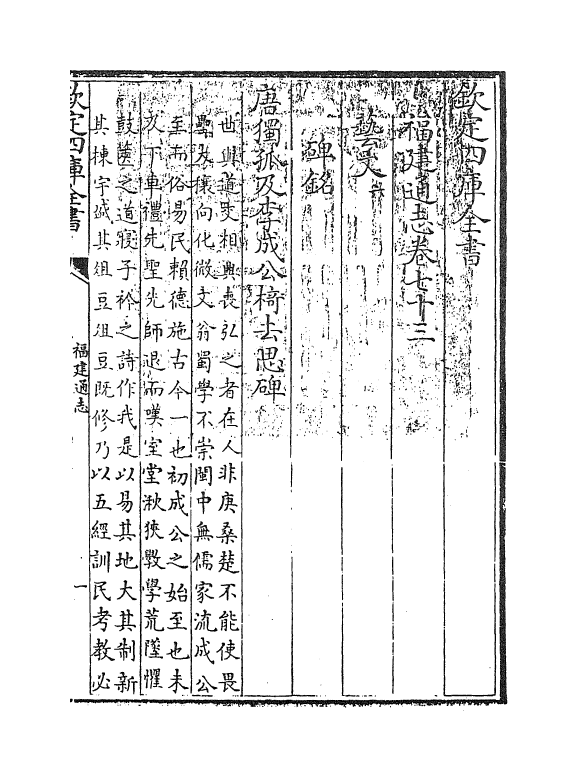 欽定四庫全書
福建通志卷七十三
藝文六
碑銘
唐獨孤及李成公椅去思碑
世與道交相興喪弘之者在人非庚桑楚不能使畏
壘及穰向化微文翁蜀學不崇閩中無儒家流成公
至而俗易民賴德施古今一也初成公之始至也未
及下車禮先聖先師退而嘆室堂湫狹斆學荒墜懼
鼓篋之道寢子衿之詩作我是以易其地大其制新
其棟宇盛其俎豆俎豆既修乃以五經訓民考教必
欽定四庫全書
福建通志
一